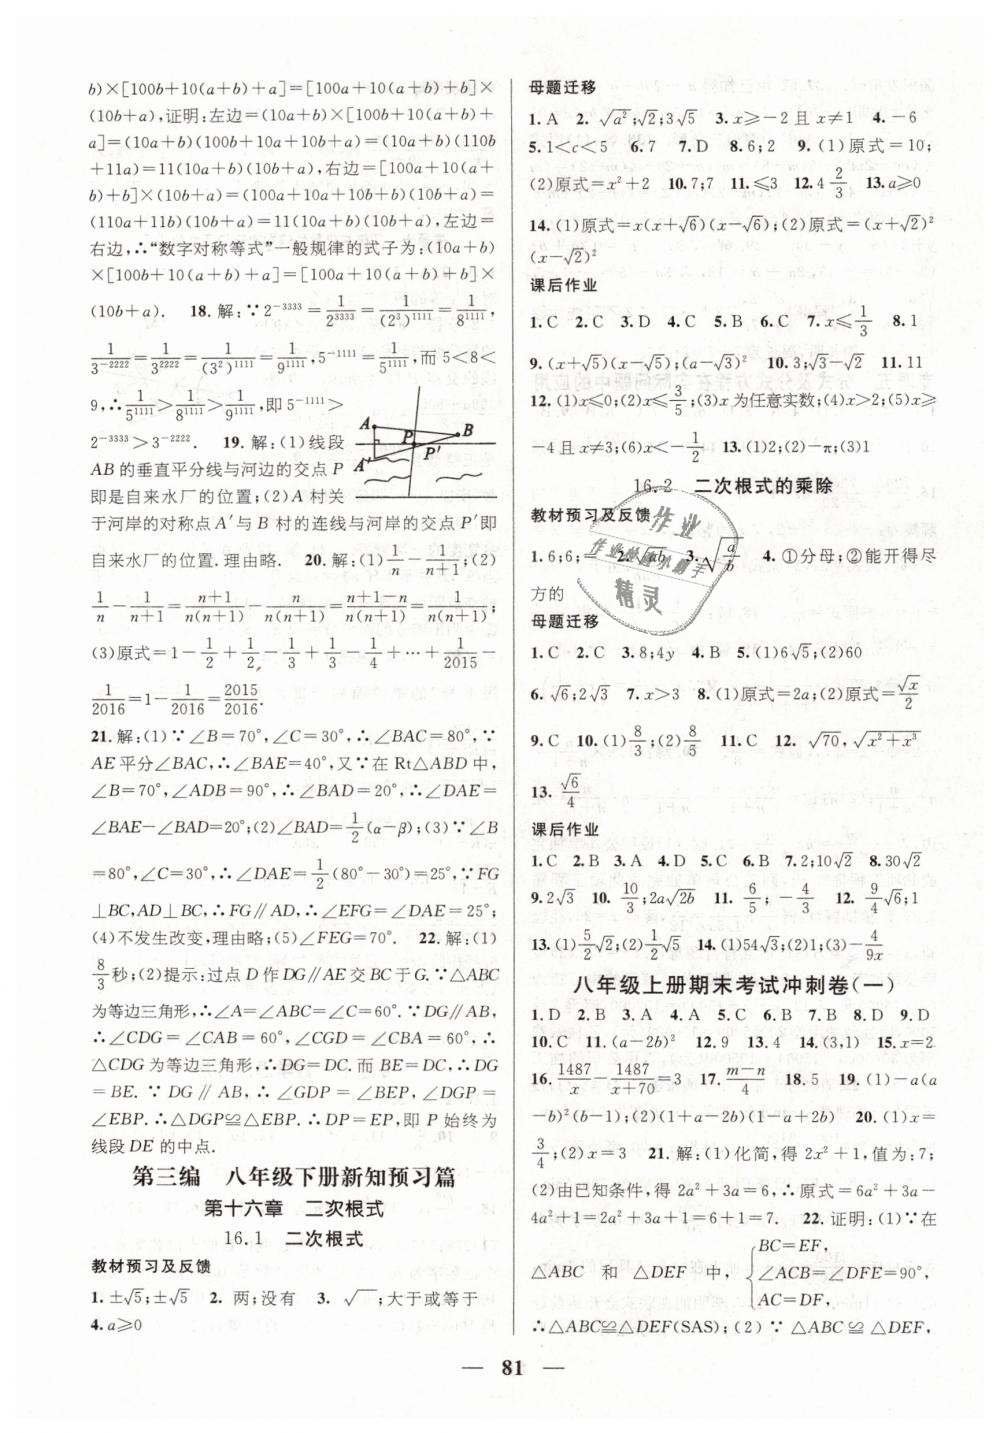 b)×[100b+10(a+b)+a]=[100a+10(a+b)+b]×
(10b+a),证明:左边=(10a+b)×[100b+10(a+b)+
a]=(10a+b)(100b+10a+10b+a)=(10a+b)(110b
+11a)=11(10a+b)(10b+a),右边=[100a+10(a+
b)+b]×(10b+a)=(100a+10a+10b+b)(10b+a)=
(110a+11b)(10b+a)=11(10a+b)(10b+a),左边=
右边,∴“数字对称等式”一般规律的式子为:(10a+b)
×[100b+10(a+b)+a]=[100a+10(a+b)+b]×
(10b+a). 18. 解:∵2⁻³³³³=1/2³³³³=1/(2³)¹¹¹¹=1/8¹¹¹¹,
1/3⁻²²²²=1/3²²²²=1/(3²)¹¹¹¹=1/9¹¹¹¹,5⁻¹¹¹¹=1/5¹¹¹¹,而5<8<
9,∴1/5¹¹¹¹>1/8¹¹¹¹>1/9¹¹¹¹,即5⁻¹¹¹¹>
2⁻³³³³>3⁻²²²². 19. 解:(1)线段
AB的垂直平分线与河边的交点P
即是自来水厂的位置;(2)A村关
A P B A′ P′
于河岸的对称点A′与B村的连线与河岸的交点P′即
自来水厂的位置.理由略. 20. 解:(1)1/n-1/(n+1);(2)
1/n-1/(n+1)=(n+1)/n(n+1)-n/n(n+1)=(n+1-n)/n(n+1)=1/n(n+1);
(3)原式=1-1/2+1/2-1/3+1/3-1/4+…+1/2015-
1/2016=1-1/2016=2015/2016.
21. 解:(1)∵∠B=70°,∠C=30°,∴∠BAC=80°,∵
AE平分∠BAC,∴∠BAE=40°,又∵在Rt△ABD中,
∠B=70°,∠ADB=90°,∴∠BAD=20°,∴∠DAE=
∠BAE-∠BAD=20°;(2)∠BAD=1/2(α-β);(3)∵∠B
=80°,∠C=30°,∴∠DAE=1/2(80°-30°)=25°,∵FG
⊥BC,AD⊥BC,∴FG∥AD,∴∠EFG=∠DAE=25°;
(4)不发生改变,理由略;(5)∠FEG=70°. 22. 解:(1)
8/3秒;(2)提示:过点D作DG∥AE交BC于G.∵△ABC
为等边三角形,∴∠A=∠ABC=∠C=60°.∵DG∥AB,
∴∠CDG=∠CAB=60°,∠CGD=∠CBA=60°,∴
△CDG为等边三角形,∴DG=DC.而BE=DC,∴DG
=BE. ∵ DG∥AB,∴∠GDP=∠BEP,∠DGP=
∠EBP.∴△DGP≌△EBP.∴DP=EP,即P始终为
线段DE的中点.
第三编 八年级下册新知预习篇
第十六章 二次根式
16.1 二次根式
教材预习及反馈
1. ±√5;±√5 2. 两;没有 3. √‾;大于或等于
4. a≥0
母题迁移
1. A 2. √a²;√2;3√5 3. x≥-2且x≠1 4. -6
5. 1<c<5 6. 7 7. D 8. 6;2 9. (1)原式=10;
(2)原式=x²+2 10. 7;7 11. ≤3 12. 4 2/3 13. a≥0
14. (1)原式=x(x+√6)(x-√6);(2)原式=(x+√2)²
(x-√2)²
课后作业
1. C 2. C 3. D 4. C 5. B 6. C 7. x≤1/3 8. 1
9. (x+√5)(x-√5);(a-√3)² 10. 3;√3-√2 11. 11
12. (1)x≤0;(2)x≤3/5;(3)x为任意实数;(4)x>2;(5)x≥
-4且x≠3;(6)x<-1/2 13. (1)2;(2)-π;(3)1
16.2 二次根式的乘除
教材预习及反馈
1. 6;6;= 2. √ab 3. √(a/b) 4. ①分母;②能开得尽
方的
母题迁移
1. C 2. C 3. 8;4y 4. B 5. (1)6√5;(2)60
6. √6;2√3 7. x>3 8. (1)原式=2a;(2)原式=√x/2
9. C 10. (1)8/3;(2)8/5 11. C 12. √70,√(x²+x³)
13. √6/4
课后作业
1. C 2. B 3. A 4. D 5. C 6. B 7. 2;10√2 8. 30√2
9. 2√3 10. 10/3;2a√2b 11. 6/5;-4/3 12. 9/4√6;1
13. (1)5/2√2;(2)1/2√5 14. (1)54√3;(2)1;(3)-4/9x
八年级上册期末考试冲刺卷(一)
1. D 2. B 3. A 4. A 5. C 6. B 7. B 8. D 9. D
10. C 11. (a-2b)² 12. 9 13. 4 14. (3,1) 15. x=2
16. 1487/x-1487/(x+70)=3 17. (m-n)/4 18. 5 19. (1)-a(a
-b)²(b-1);(2)(1+a-2b)(1-a+2b) 20. (1)x=
3/4;(2)x=3 21. 解:(1)化简,得2x²+1,值为:7;
(2)由已知条件,得2a²+3a=6,∴原式=6a²+3a-
4a²+1=2a²+3a+1=6+1=7. 22. 证明:(1)∵在
△ABC 和 △DEF 中,{BC=EF,
∠ACB=∠DFE=90°,
AC=DF,
∴△ABC≌△DEF(SAS);(2)∵△ABC≌△DEF,
— 81 —
作业
作业检查小助手
精灵